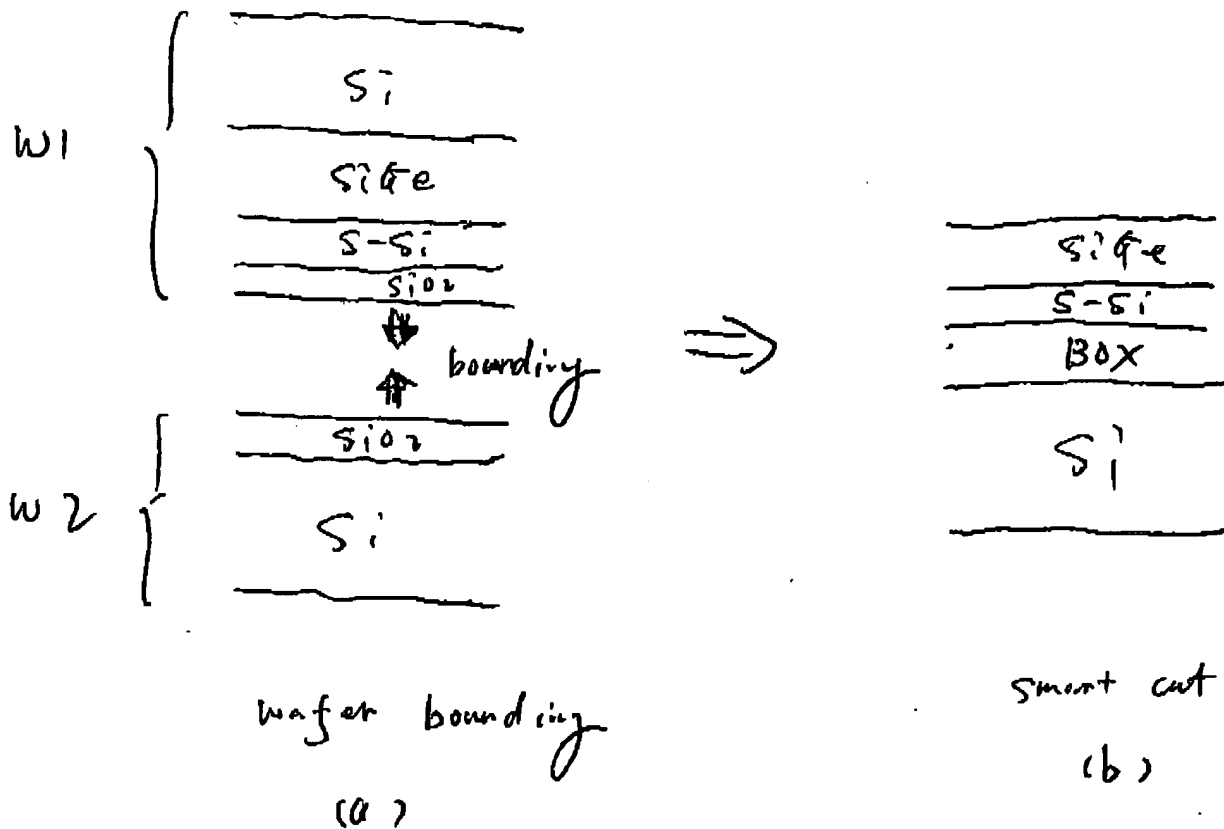 W1
Si
SiGe
S-Si
SiO2
bounding
W2
SiO2
Si
wafer bounding
(a)
SiGe
S-Si
BOX
Si
smart cut
(b)